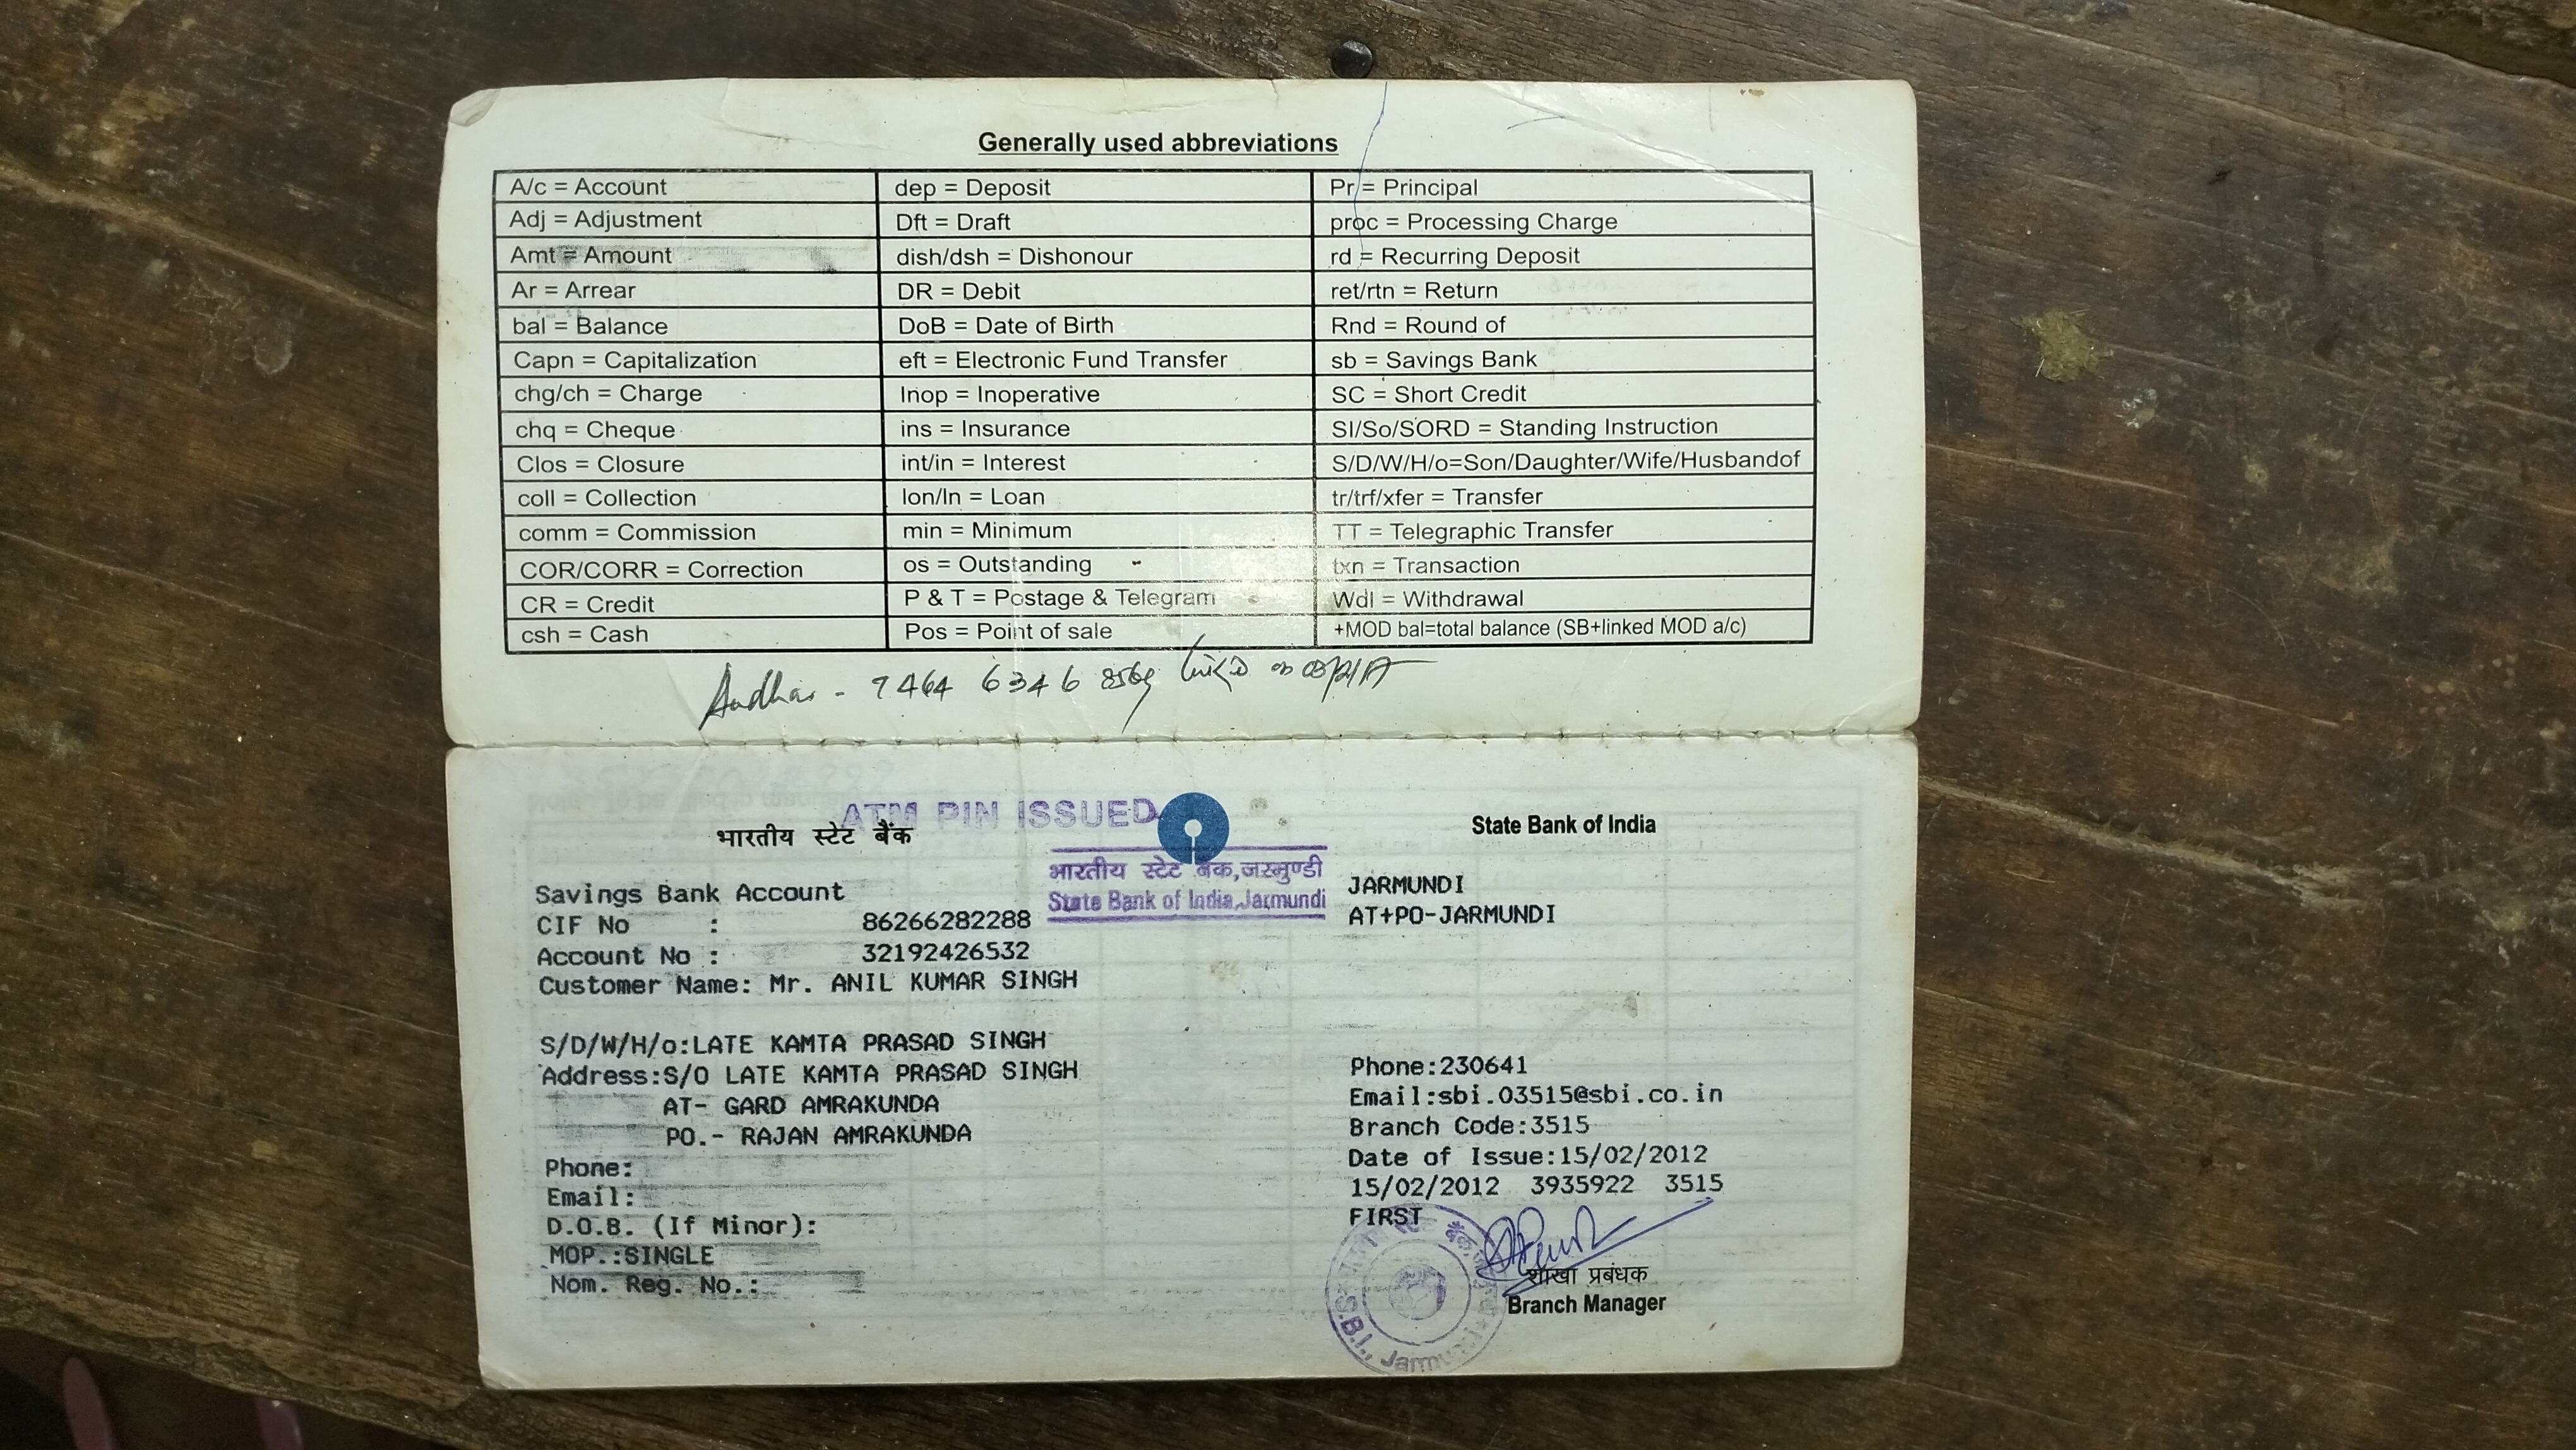 Generally used abbreviations
A/c = Account dep = Deposit Pr = Principal
Adj = Adjustment Dft = Draft proc = Processing Charge
Amt = Amount dish/dsh = Dishonour rd = Recurring Deposit
Ar = Arrear DR = Debit ret/rtn = Return
bal = Balance DoB = Date of Birth Rnd = Round of
Capn = Capitalization eft = Electronic Fund Transfer sb = Savings Bank
chg/ch = Charge Inop = Inoperative SC = Short Credit
chq = Cheque ins = Insurance SI/So/SORD = Standing Instruction
Clos = Closure int/in = Interest S/D/W/H/o=Son/Daughter/Wife/Husbandof
coll = Collection lon/ln = Loan tr/trf/xfer = Transfer
comm = Commission min = Minimum TT = Telegraphic Transfer
COR/CORR = Correction os = Outstanding txn = Transaction
CR = Credit P & T = Postage & Telegram Wdl = Withdrawal
csh = Cash Pos = Point of sale +MOD bal=total balance (SB+linked MOD a/c)
Aadhar - 7464 6346
ATM PIN ISSUED
भारतीय स्टेट बैंक State Bank of India
भारतीय स्टेट बैंक,जरमुण्डी
State Bank of India,Jarmundi
JARMUNDI
AT+PO-JARMUNDI
Savings Bank Account
CIF No : 86266282288
Account No : 32192426532
Customer Name: Mr. ANIL KUMAR SINGH
S/D/W/H/o:LATE KAMTA PRASAD SINGH
Address:S/O LATE KAMTA PRASAD SINGH
AT- GARD AMRAKUNDA
PO.- RAJAN AMRAKUNDA
Phone:
Email:
D.O.B. (If Minor):
MOP.:SINGLE
Nom. Reg. No.:
Phone:230641
Email:sbi.03515@sbi.co.in
Branch Code:3515
Date of Issue:15/02/2012
15/02/2012 3935922 3515
FIRST
S.B.I., Jarmundi
शाखा प्रबंधक
Branch Manager